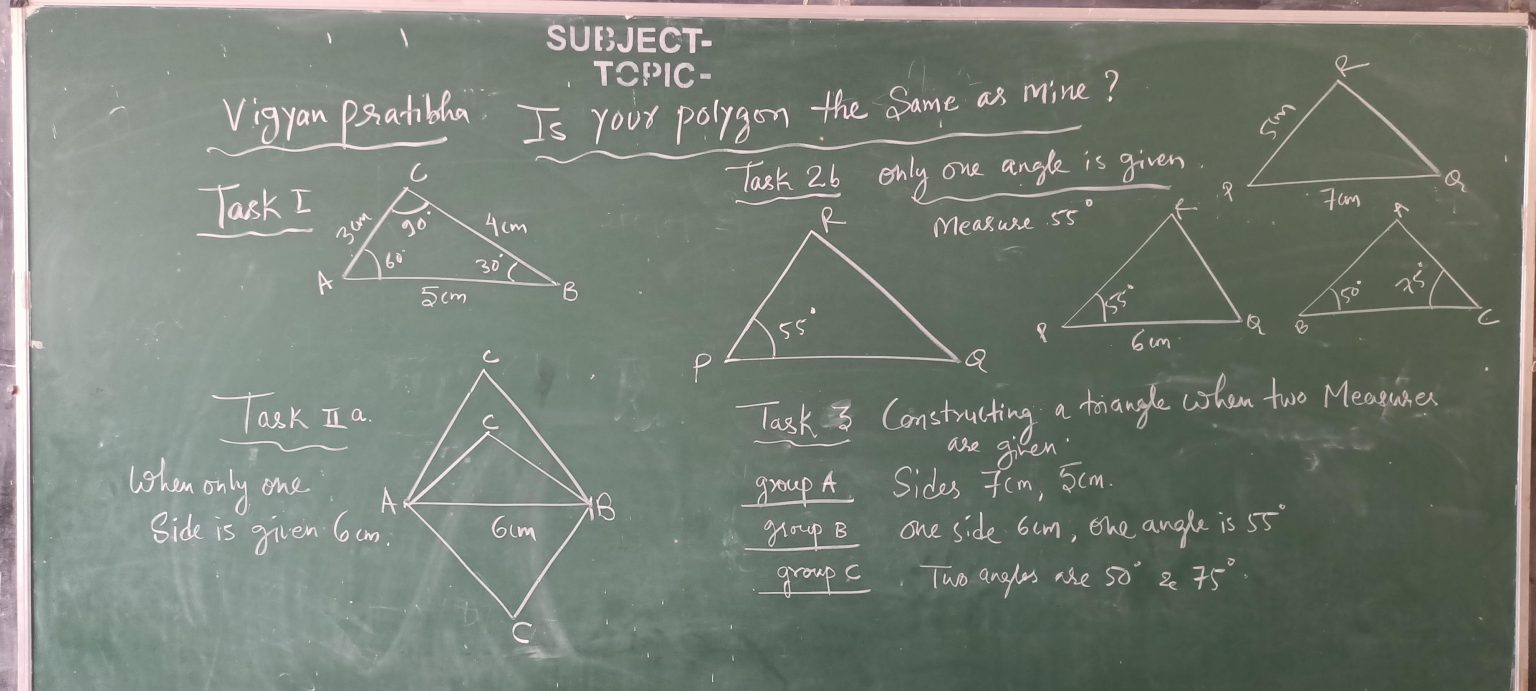 SUBJECT-
TOPIC-
Vigyan Pratibha Is your polygon the Same as mine?
Task I
C
3cm
90°
4cm
60°
30°
A
5cm
B
Task 2b only one angle is given.
Measure 55°
R
55°
P
Q
R
5cm
P
7cm
Q
R
55°
P
6cm
Q
A
50°
75°
B
C
Task II a.
When only one
Side is given 6cm.
C
C
A
B
6cm
C
Task 3 Constructing a triangle when two Measures
are given.
group A Sides 7cm, 5cm.
group B one side 6cm, one angle is 55°
group C Two angles are 50° & 75°.